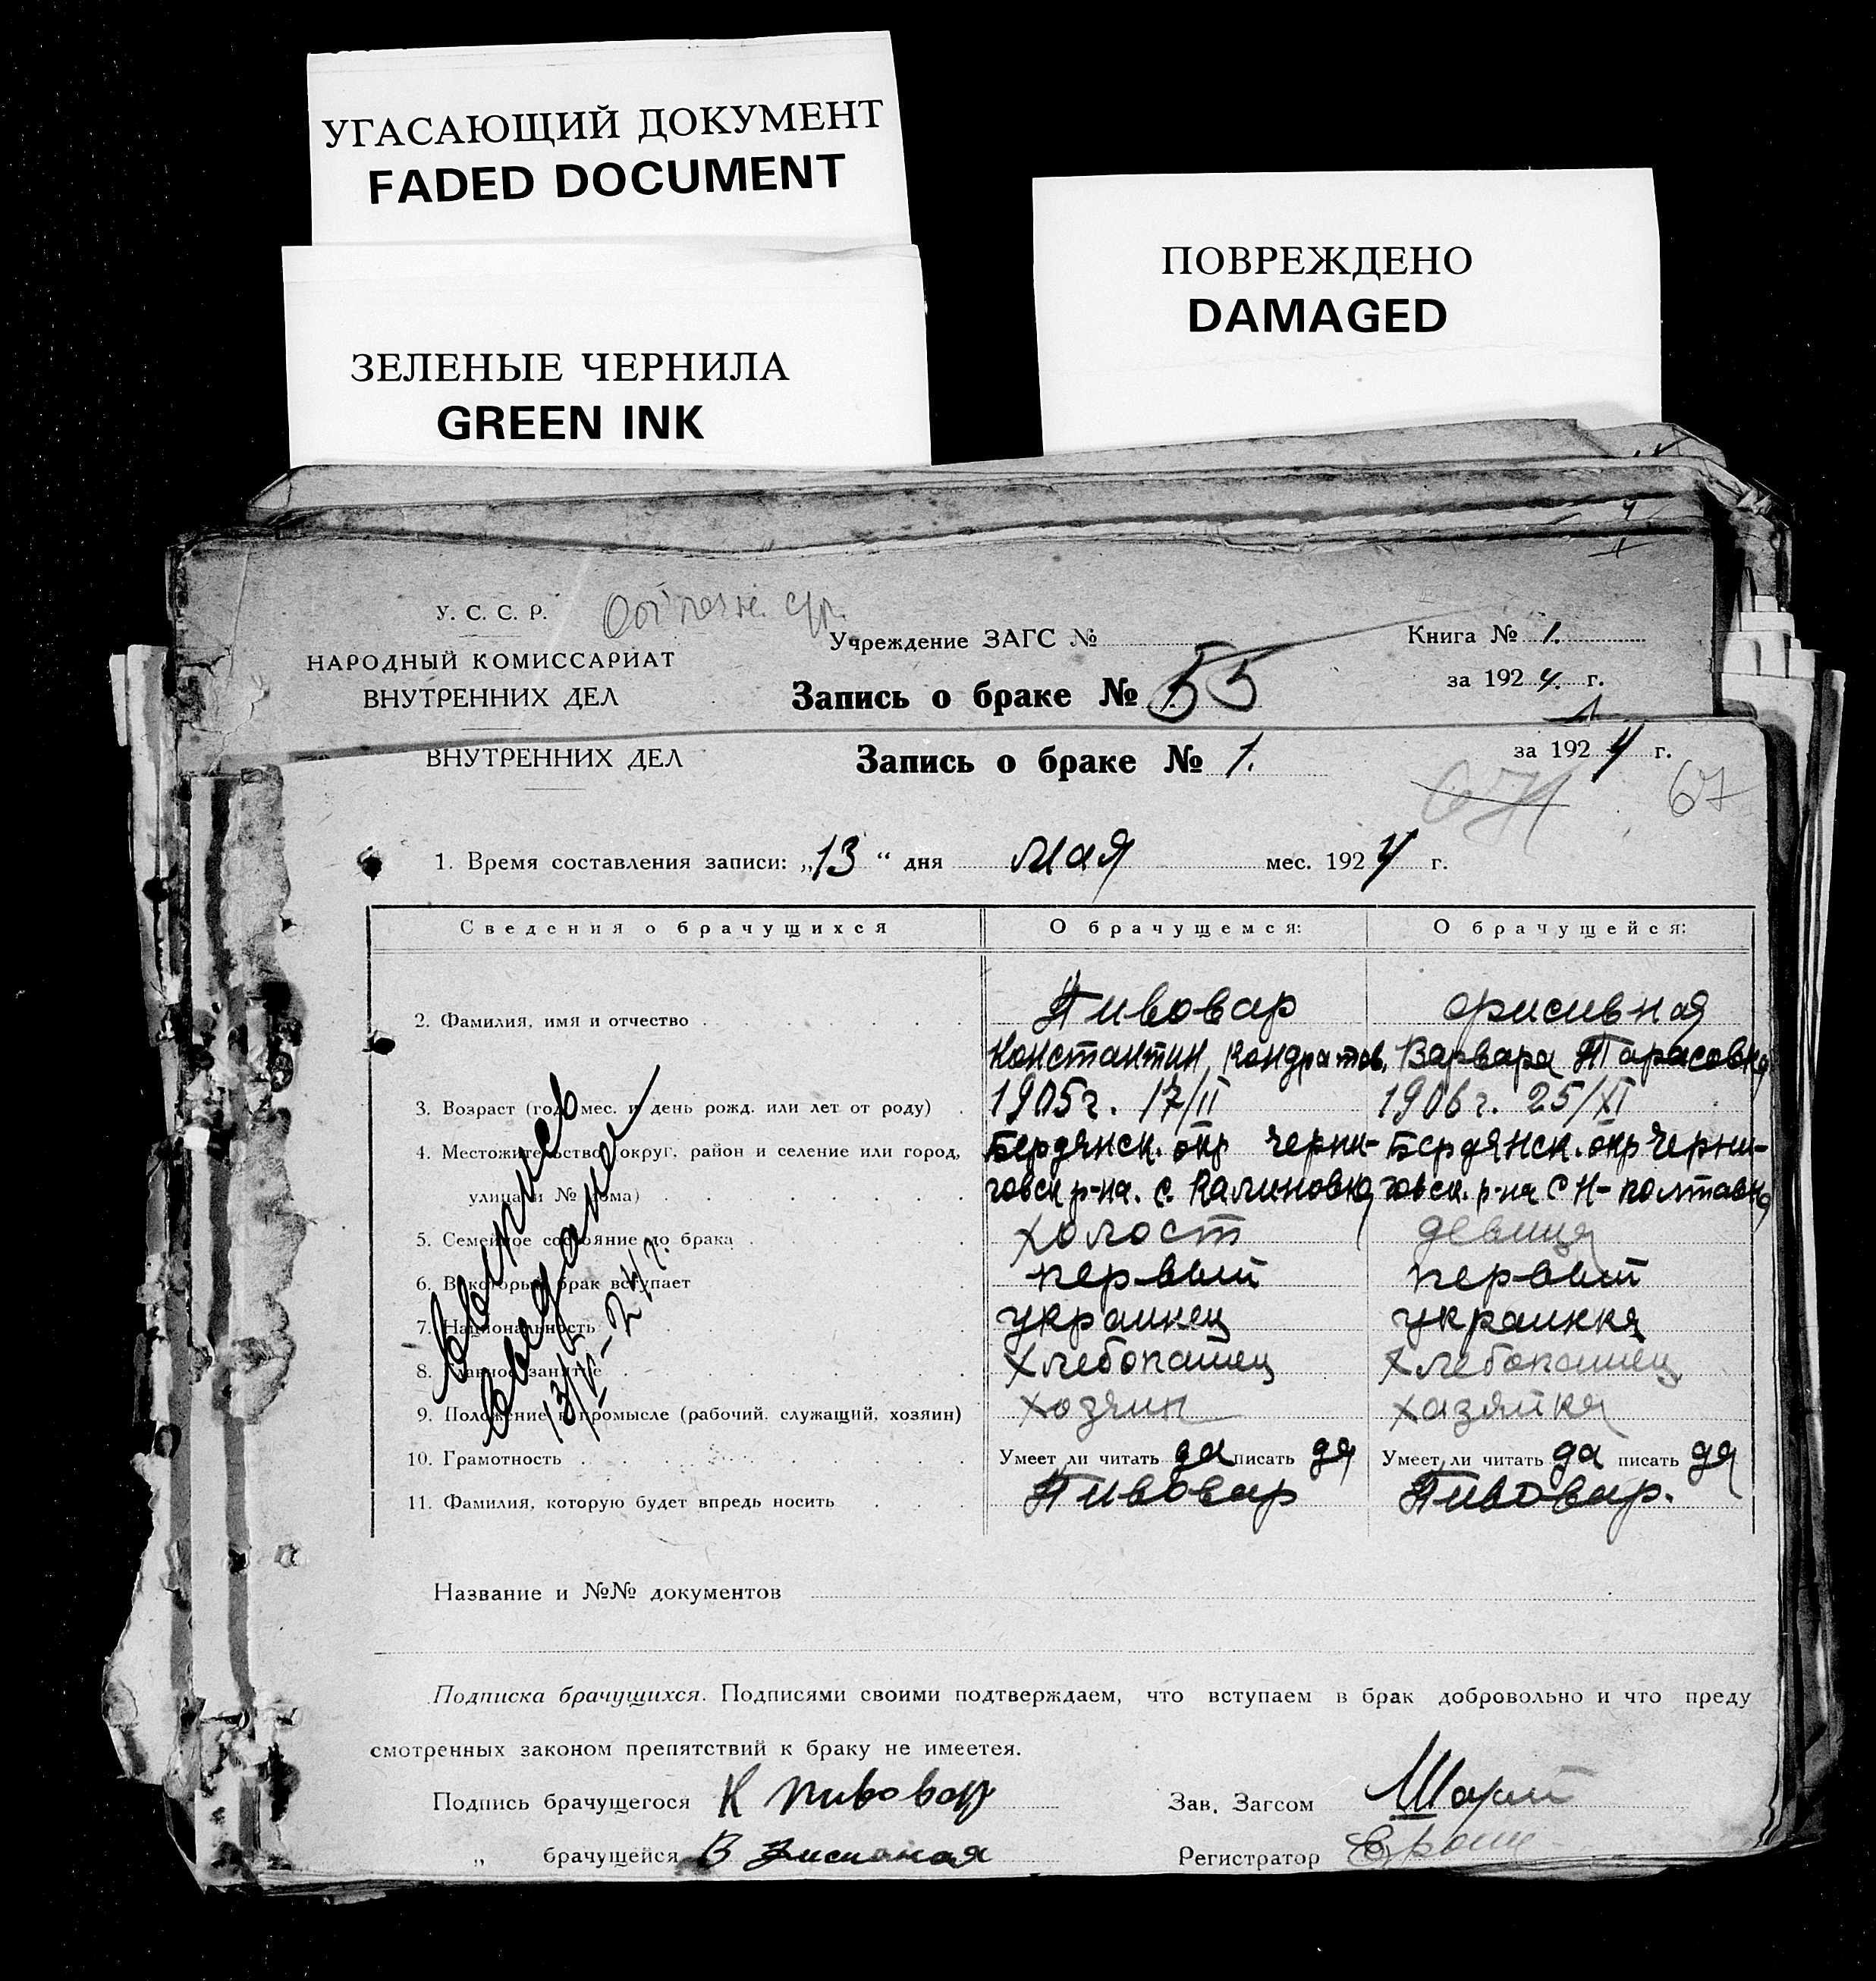 УГАСАЮЩИЙ ДОКУМЕНТ
FADED DOCUMENT
ЗЕЛЕНЫЕ ЧЕРНИЛА
GREEN INK
ПОВРЕЖДЕНО
DAMAGED
У. С. С. Р.
НАРОДНЫЙ КОМИССАРИАТ
ВНУТРЕННИХ ДЕЛ
Учреждение ЗАГС №
Запись о браке № 55
Книга № 1.
за 1924. г.
ВНУТРЕННИХ ДЕЛ
Запись о браке № 1.
за 1924 г.
67
1. Время составления записи: „13“ дня мая мес. 1924 г.
Сведения о брачущихся О брачущемся: О брачущейся:
2. Фамилия, имя и отчество Пивовар
Константин Кондратов. Варвара Тарасовна
3. Возраст (год, мес. и день рожд. или лет от роду) 1905г. 17/II 1906г. 25/XI
4. Местожительство (округ, район и селение или город, Бердянск. окр черни- Бердянск. окр Черни-
улица и № дома) говск р-на. с. Калиновка говск. р-на С Н-полтавка
5. Семейное состояние до брака холост девица
6. В который брак вступает первый первый
7. Национальность украинец украинка
8. Главное занятие хлебопашец хлебопашец
9. Положение в промысле (рабочий, служащий, хозяин) хозяин хазяйка
10. Грамотность Умеет ли читать да писать да Умеет ли читать да писать да
11. Фамилия, которую будет впредь носить Пивовар Пивовар.
Выпись
выдана
Название и №№ документов
Подписка брачущихся. Подписями своими подтверждаем, что вступаем в брак добровольно и что преду
смотренных законом препятствий к браку не имеетея.
Подпись брачущегося К пивовар Зав. Загсом
„ брачущейся В Регистратор